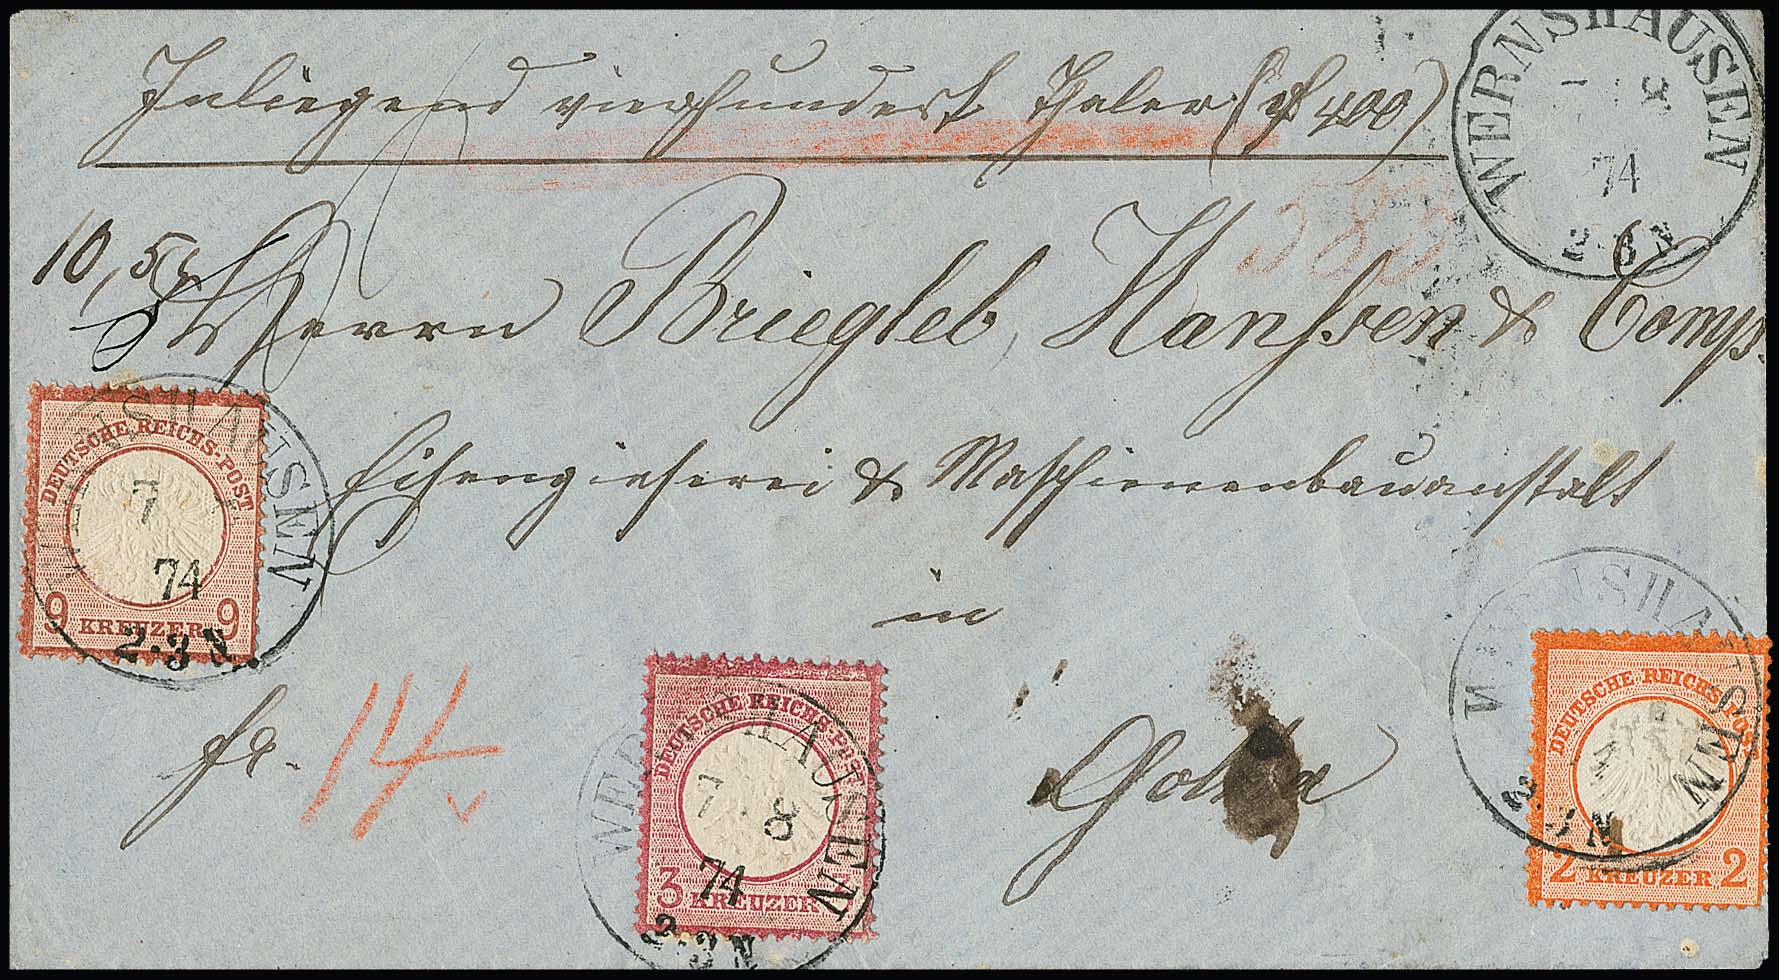 Inliegend vierhundert Thaler (400)
WERNSHAUSEN
74
10,5
583
Herrn Briegleb, Hanssen & Comp.
Eisengieserei & Maschienenbauanstalt
in
Gotha
fr. 14
DEUTSCHE REICHS-POST
9 KREUZER 9
WERNSHAUSEN
7
74
2-3 N
DEUTSCHE REICHS-POST
3 KREUZER
WERNSHAUSEN
7 8
74
2-3 N
DEUTSCHE REICHS-POST
2 KREUZER 2
WERNSHAUSEN